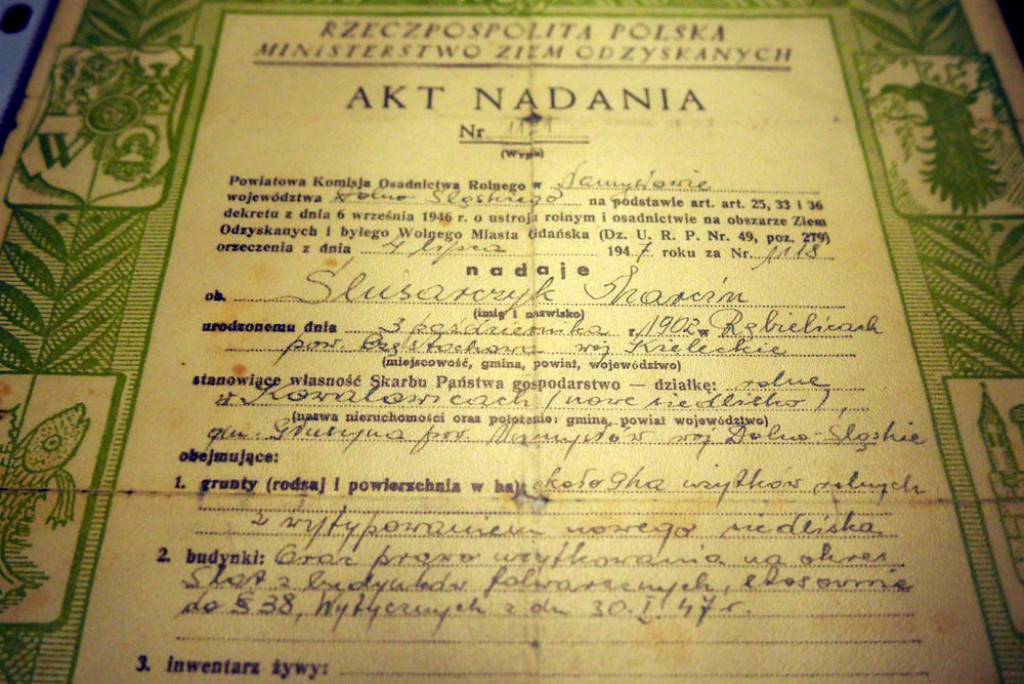 RZECZPOSPOLITA POLSKA
MINISTERSTWO ZIEM ODZYSKANYCH
AKT NADANIA
Nr
(Wypis)
Powiatowa Komisja Osadnictwa Rolnego w Namysłowie
województwa Dolno Śląskiego na podstawie art. art. 25, 33 i 36
dekretu z dnia 6 września 1946 r. o ustroju rolnym i osadnictwie na obszarze Ziem
Odzyskanych i byłego Wolnego Miasta Gdańska (Dz. U. R. P. Nr. 49, poz. 279)
orzeczenia z dnia 4 lipca 1947 roku za Nr. 1118
nadaje
ob. Slusarczyk Marcin
(imię i nazwisko)
urodzonemu dnia 3 października r. 1902 w Rębielicach
pow. Częstochowa woj Kieleckie
(miejscowość, gmina, powiat, województwo)
stanowiące własność Skarbu Państwa gospodarstwo — działkę: rolne
w Kowalowicach (nowe siedlisko)
(nazwa nieruchomości oraz położenie: gmina, powiat województwo)
gm. Głuszyna pow. Namysłów woj Dolno-Śląskie
obejmujące:
1. grunty (rodzaj i powierzchnia w ha): około 9ha użytków rolnych
z wytypowaniem nowego siedliska
2. budynki: Oraz prawo użytkowania na okres
5 lat z budynków folwarcznych, stosownie
do § 38, Wytycznych z dn 30.I.47 r.
3. inwentarz żywy:
W